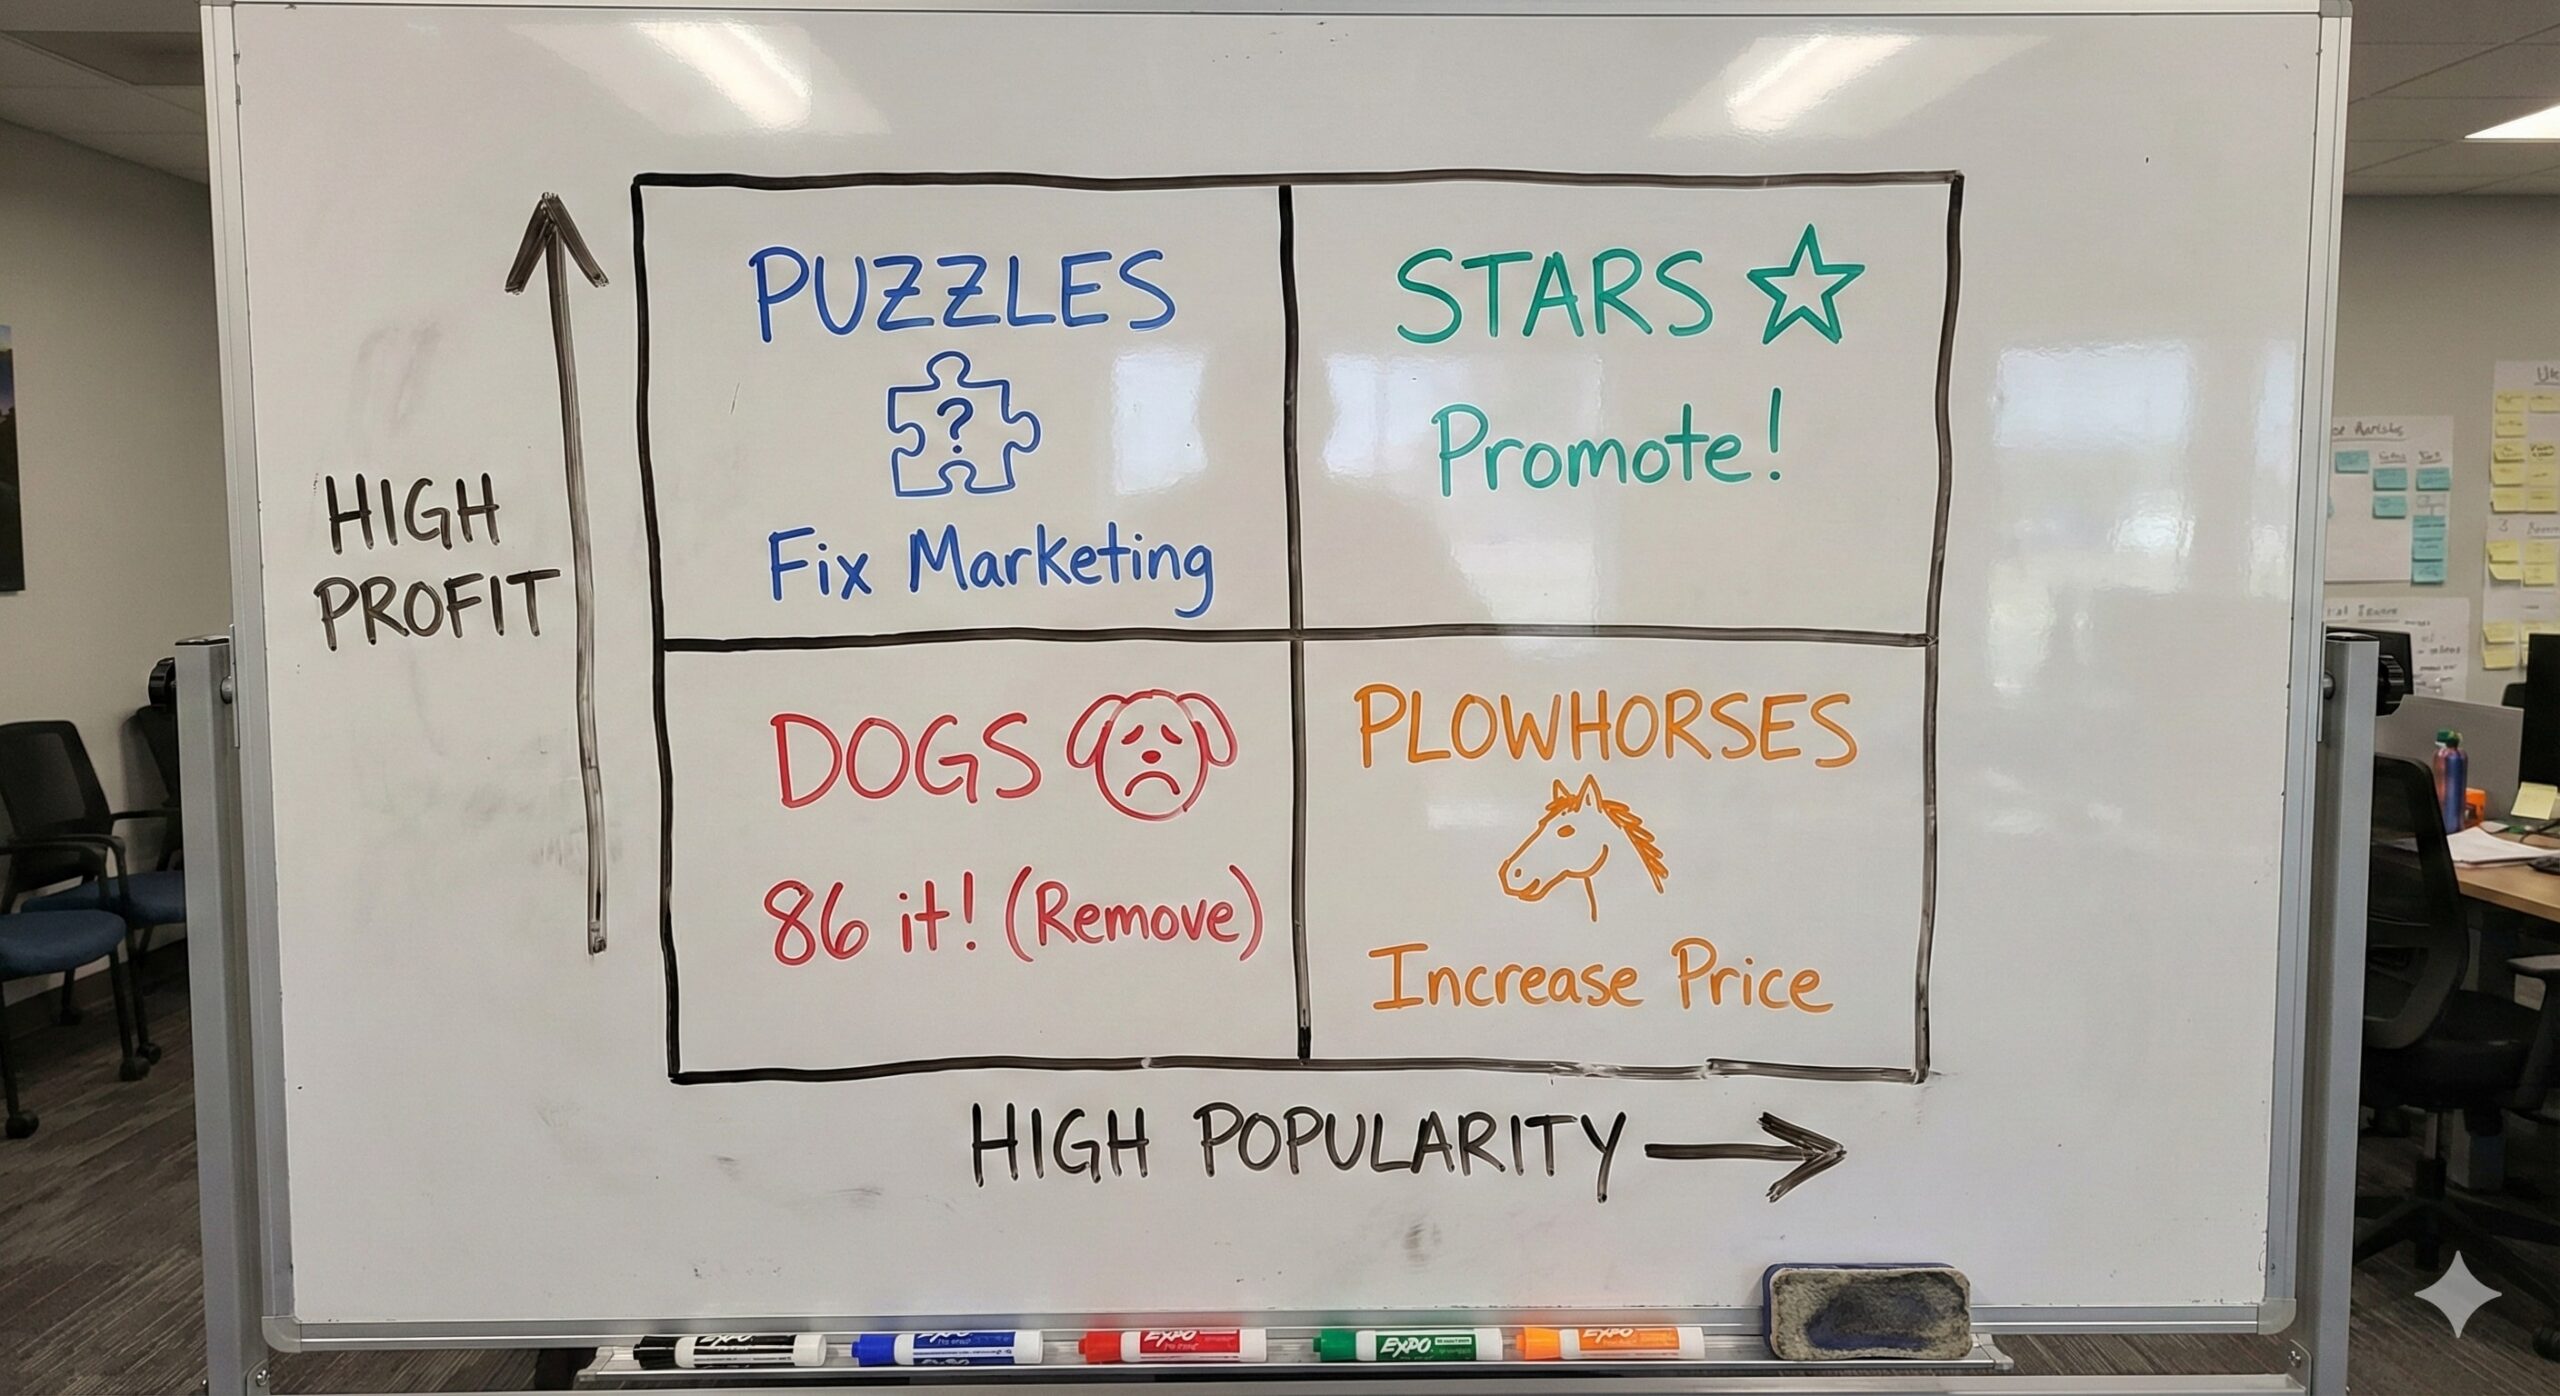 PUZZLES
?
Fix Marketing
STARS
Promote!
HIGH
PROFIT
DOGS
86 it! (Remove)
PLOWHORSES
Increase Price
HIGH POPULARITY
EXPO
EXPO
EXPO
EXPO
EXPO